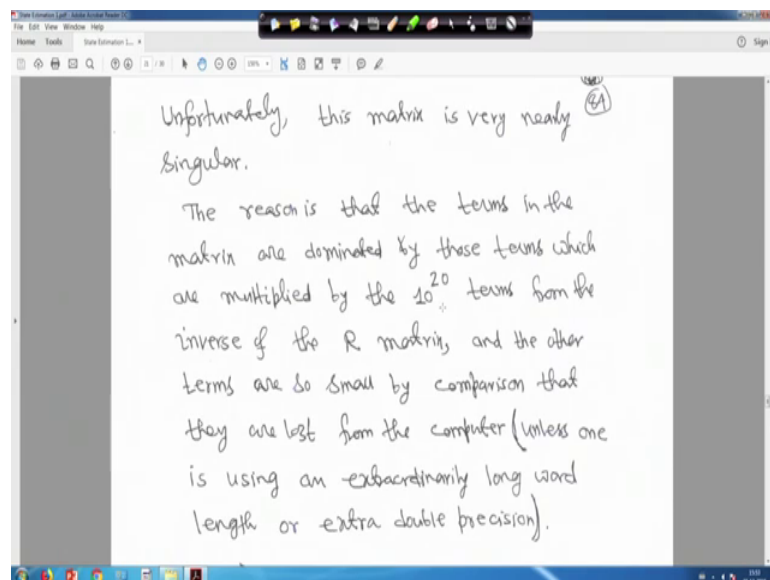 State Estimation 1.pdf - Adobe Acrobat Reader DC
File Edit View Window Help
Home Tools State Estimation 1... ×
Sign
Unfortunately, this matrix is very nearly
84
Singular.
The reason is that the terms in the
matrix are dominated by those terms which
are multiplied by the 10²⁰ terms from the
inverse of the R matrix, and the other
terms are so small by comparison that
they are lost from the computer (unless one
is using an extraordinarily long word
length or extra double precision).